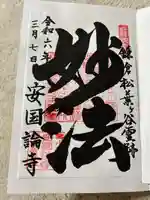 鎌倉松葉ヶ谷霊跡
妙法
令和六年
三月七日
安国論寺